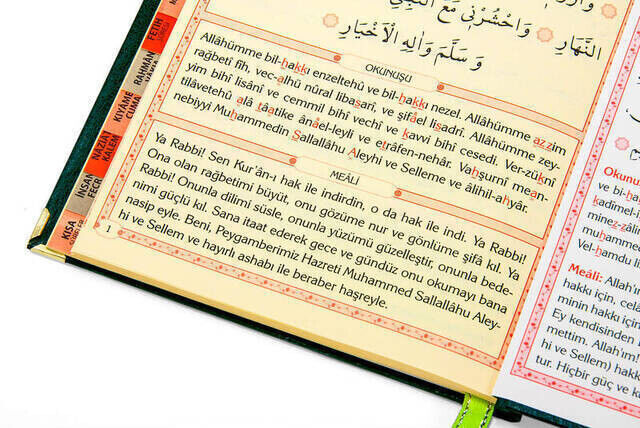 النَّهَارِ وَاحْشُرْنِي مَعَ النَّبِيِّ
وَسَلَّمَ وَاٰلِهِ الْاَخْيَارِ
OKUNUŞU
Allâhümme bil-hakkı enzeltehû ve bil-hakkı nezel. Allâhümme azzim
rağbetî fîh, vec-alhü nûral libasarî, ve şifâel lisadrî. Allâhümme zey-
yim bihî lisânî ve cemmil bihî vechî ve kavvi bihî cesedî. Ver-züknî
tilâvetehû alâ tâatike ânâel-leyli ve etrâfen-nehâr. Vahşurnî mean-
nebiyyi Muhammedin Sallallâhu Aleyhi ve Selleme ve âlihil-ahyâr.
MEÂLİ
Ya Rabbi! Sen Kur'ân-ı hak ile indirdin, o da hak ile indi. Ya Rabbi!
Ona olan rağbetimi büyüt, onu gözüme nur ve gönlüme şifâ kıl. Ya
Rabbi! Onunla dilimi süsle, onunla yüzümü güzelleştir, onunla bede-
nimi güçlü kıl. Sana itaat ederek gece ve gündüz onu okumayı bana
nasip eyle. Beni, Peygamberimiz Hazreti Muhammed Sallallâhu Aley-
hi ve Sellem ve hayırlı ashabı ile beraber haşreyle.
1
FETİH
SURESİ
RAHMÂN
VÂKIA
KIYÂME
CUMA
NÂZİÂT
KALEM
İNSAN
FECR
KISA
SURELER
Okunu
ve bi-ha
kadîmel-i
minez-zâli
muham
Vel-hamdu li
Meâli: Allah'ı
hakkı için, cel
minin hakkı içi
Ey kendisinden l
mettim. Allah'ım!
hi ve Sellem) hakk
tur. Hiçbir güç ve k